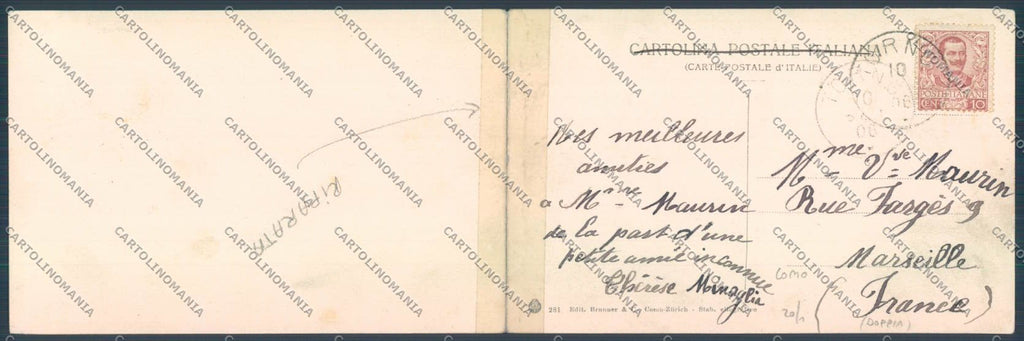 RIPARATA
CARTOLINA POSTALE ITALIANA
(CARTE POSTALE d'ITALIE)
POSTE ITALIANE
CENT. 10
Mes meilleures
amitiés
a Mme Maurin
de la part d'une
petite amie inconnue
Thérèse
Mme Vve Maurin
Rue Fargès 9
Marseille
(France)
COMO
20/1
(DOPPIA)
281 Edit. Brunner & C. Como-Zürich - Stab.
CARTOLINOMANIA